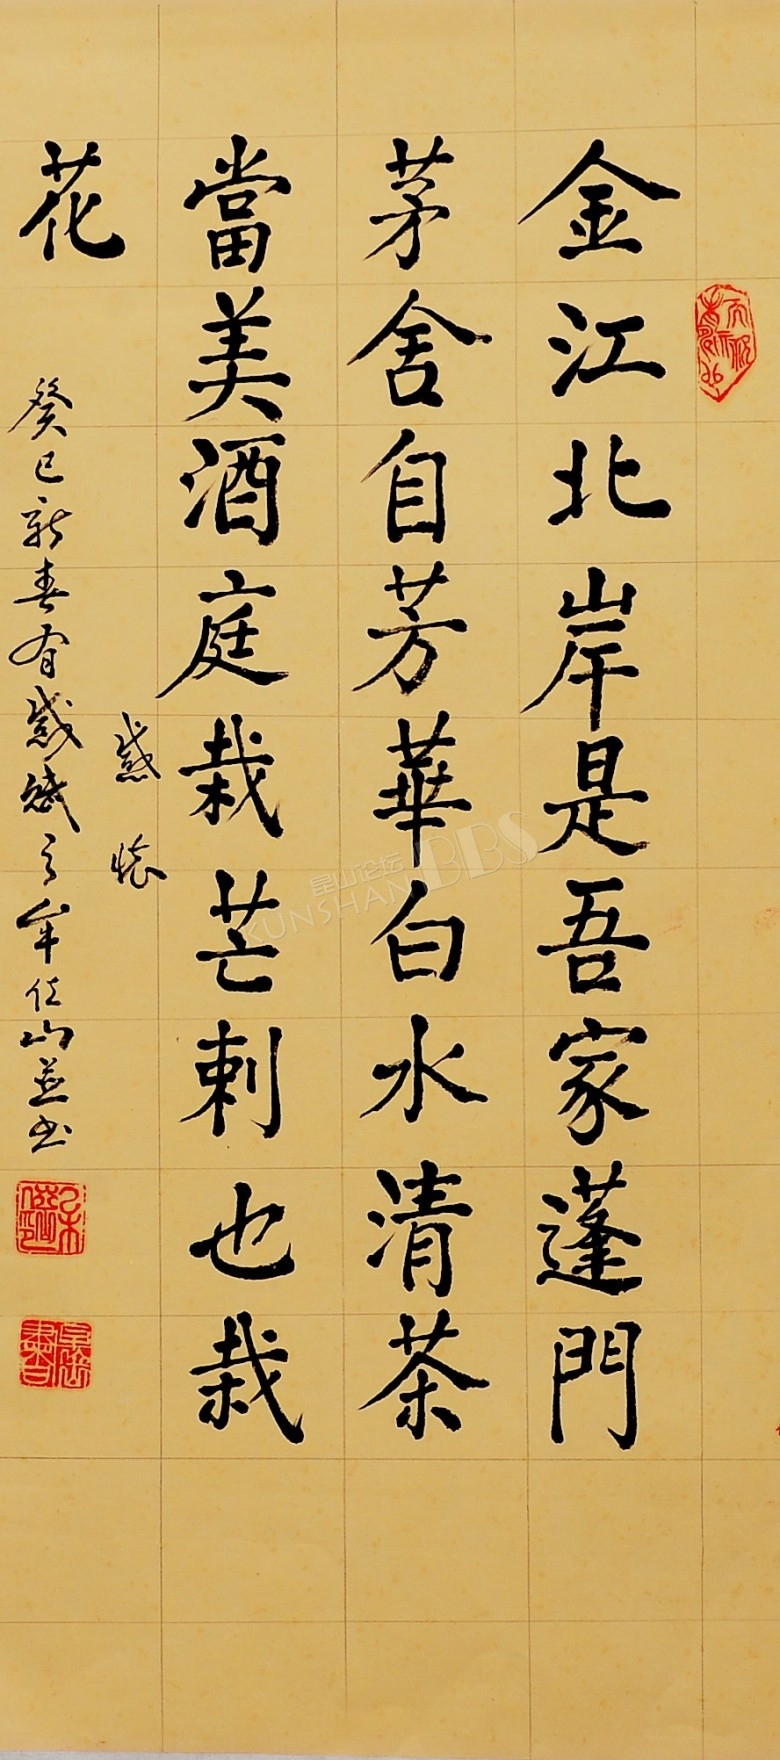 金江北岸是吾家蓬門
茅舍自芳華白水清茶
當美酒庭栽芒刺也栽
花
感懷
癸巳新春有感賦之牟仕山並书
昆山论坛BBS
KUNSHAN